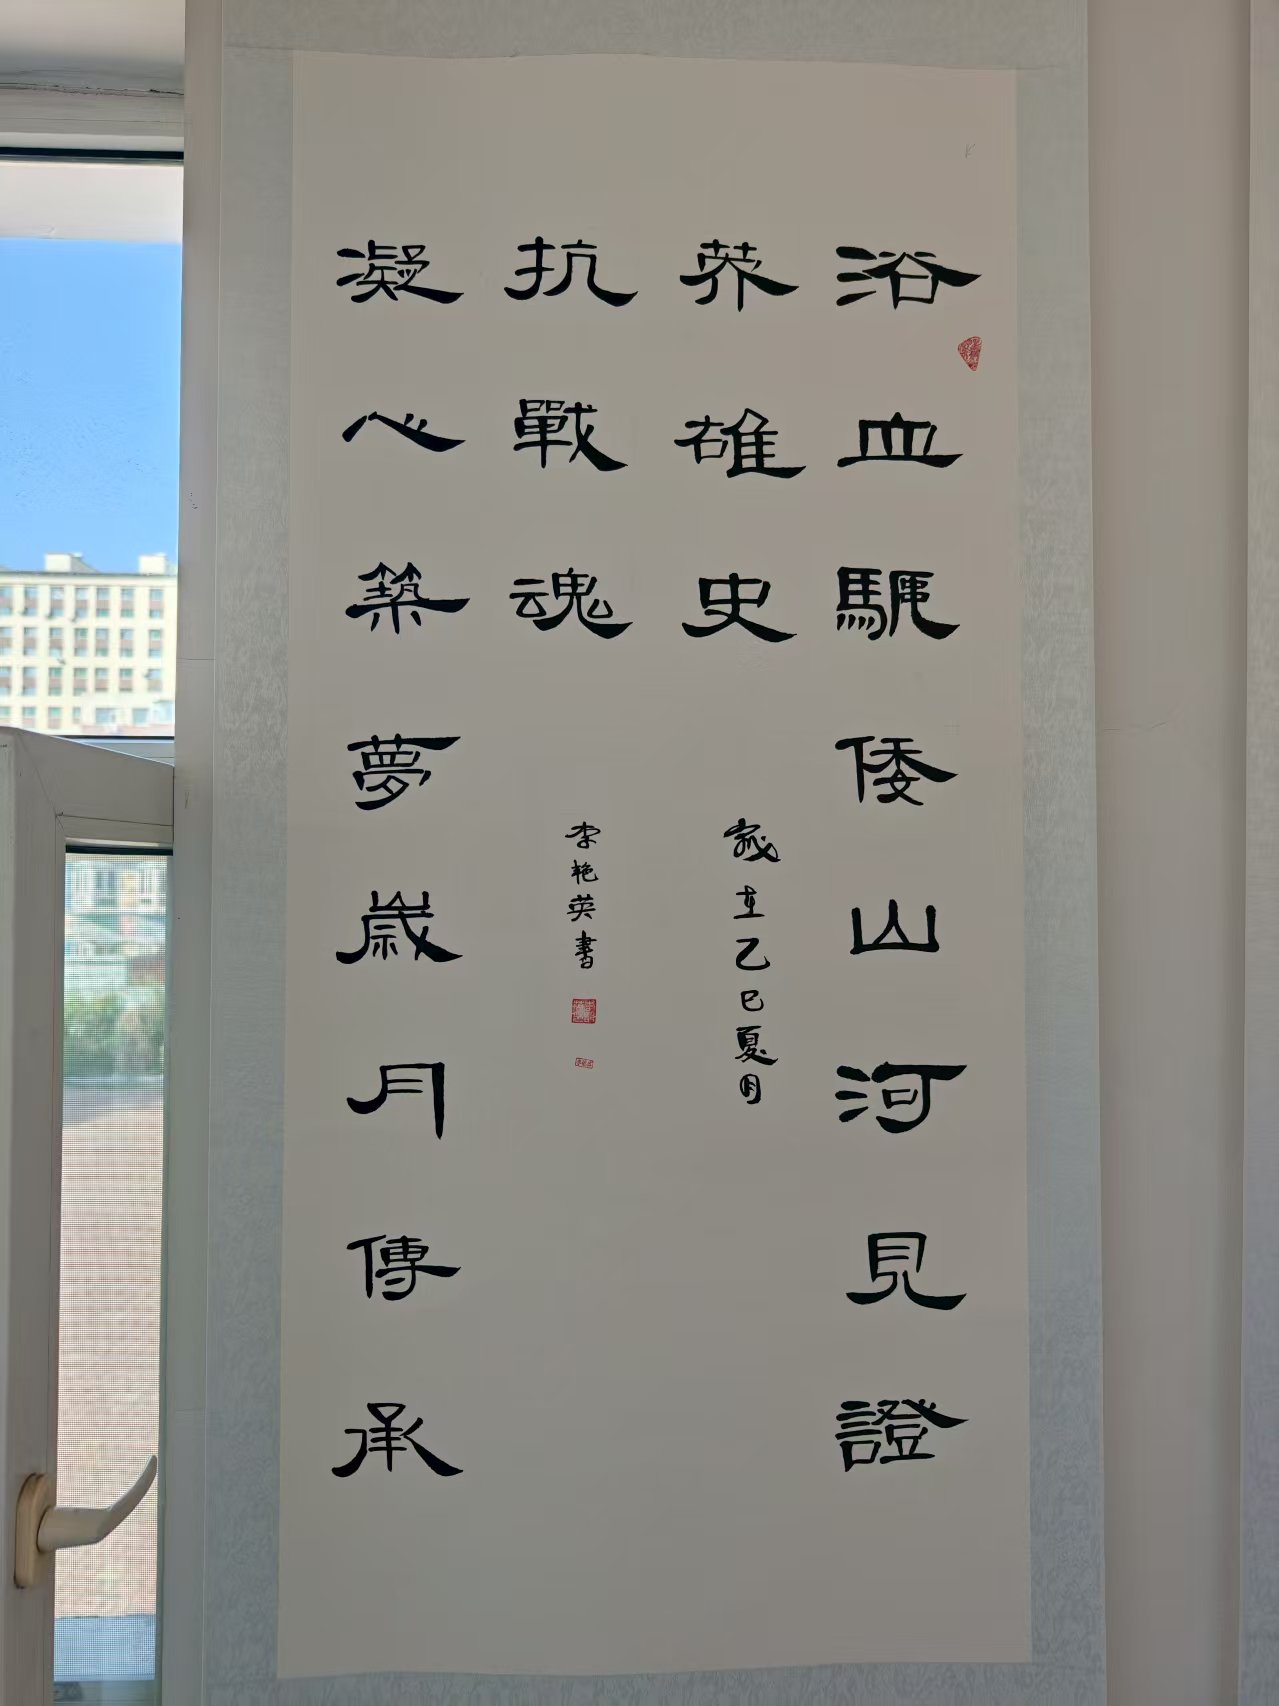 浴血驅倭山河見證
雄史
歲在乙巳夏月
抗戰魂
李艳英書
凝心築夢歲月傳承